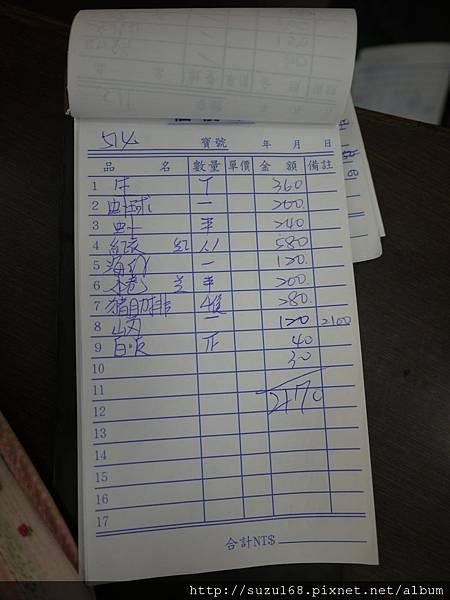 514 寶號 年 月 日
品 名 數量 單價 金 額 備註
1 牛 丁 360
2 虾球 一 200
3 虾 半 240
4 紅 580
5 一 120
6 半 200
7 猪肋排 280
8 一 120 2100
9 白飯 正 40
10 30
11
12 2170
13
14
15
16
17
合計NT$
http://suzu168.pixnet.net/album